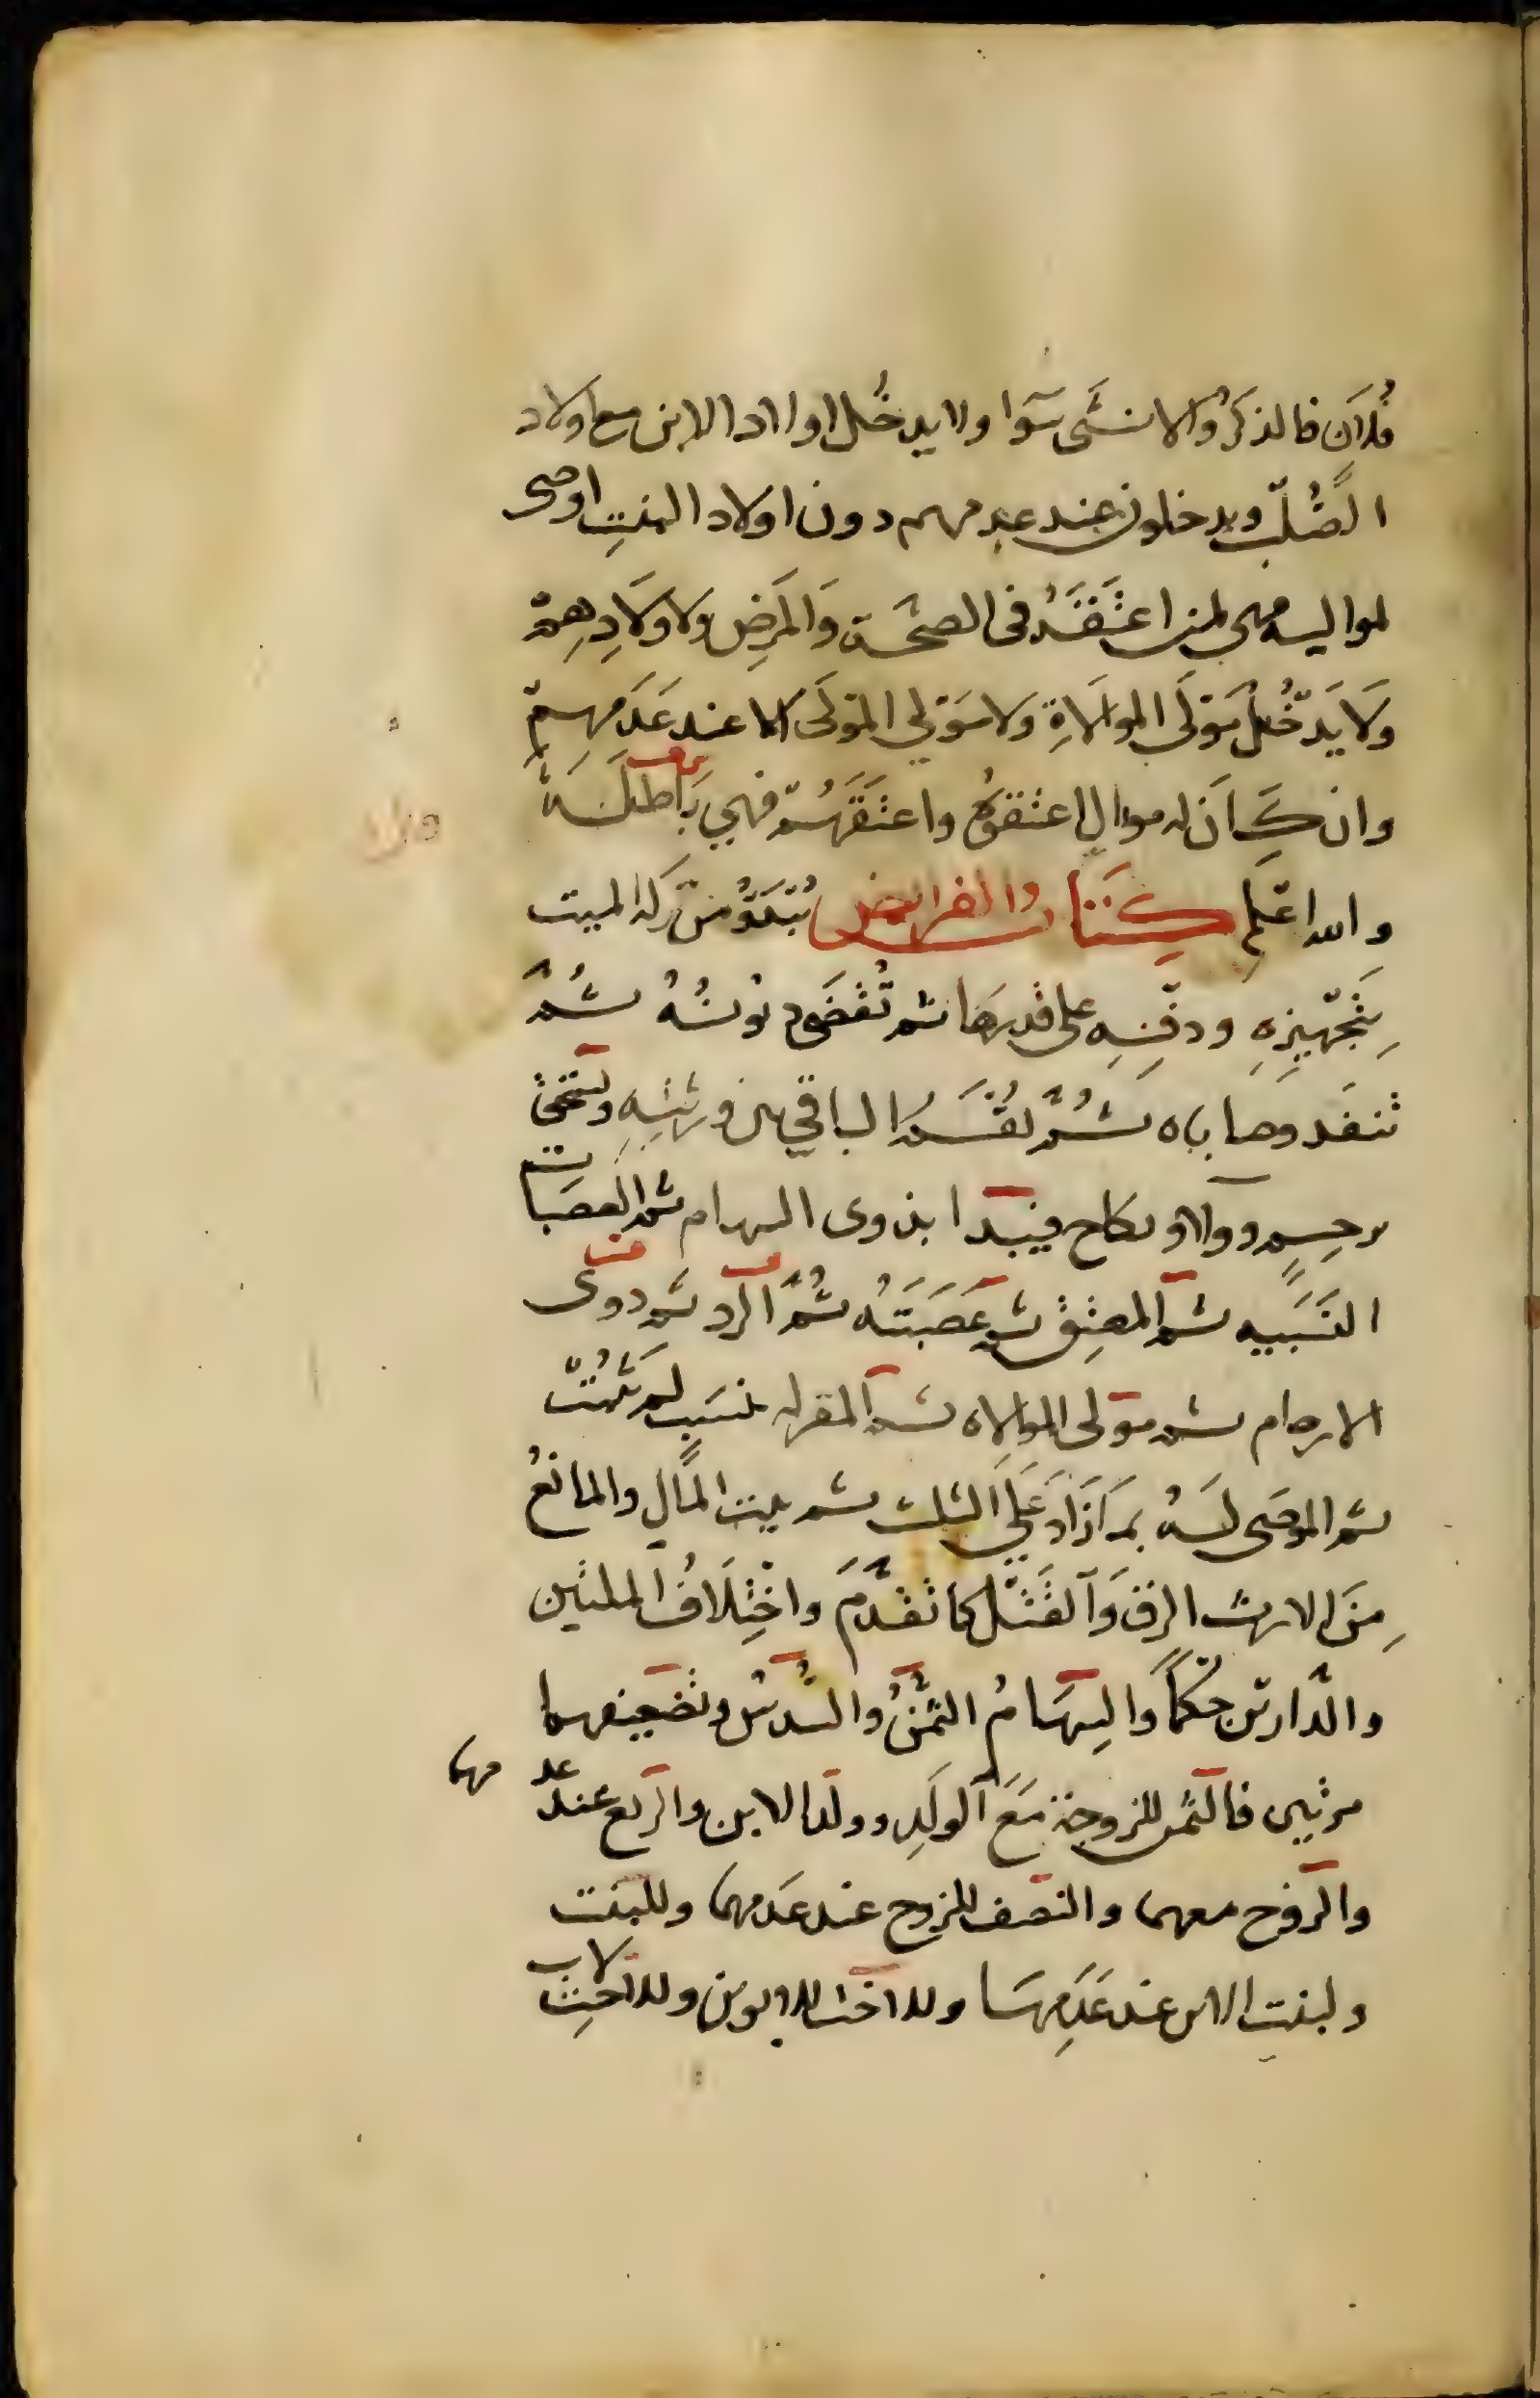 فلان فالذكر والانثى سوا ولا يدخل اولاد الابن مع اولاد
الصُّلب ويدخلون عند عدمهم دون اولاد البنت اوصى
لمواليه فهي لمن اعتقَه في الصحة وَالمرَضِ ولاولَادِهِم
وَلَا يَدخُل مَولَى الموالَاةِ ولا مَولي المَولَى الا عند عَدَمِهِم
وان كَانَ له موالٍ اعتقوه واعتقَهُم فهي بَاطلَة
والله اعلم كِتَابُ الفرايض يُبدَؤُ من تركة الميت
بِتَجهِيزِهِ ودفنِهِ على قدرها ثم تُقضَى ديونُهُ ثُمَّ
تنفذ وصاياه ثُمَّ يُقسَم الباقي بين ورثتِهِ ويستحق
برحِمٍ وولاء ونكاح فيبدا بذوى السهام ثم العصبات
النَّسَبيه ثم المعتِق ثم عَصَبَتَهُ ثُمَّ الرد ثم ذوى
الارحام ثم مولى الموالاه ثم المقر له بنسَب لم يَثبُت
ثم الموصَى لَهُ بما زَادَ عَلَى الثلث ثم بيت المَال والمانعُ
مِنَ الارث الرق وَالقَتل كما تقدَّمَ واختِلَافُ الملتين
والدَّارين حكمًا وَالسِّهَامُ الثمُنُ والسُّدسُ وتضعيفهما
مرتين فالثمن للزوجة مَعَ الولَدِ وولد الابن والربع عند عدمهما
والزوج معهما والنصف للزوج عند عَدمهما وللبنت
ولبنت الابن عند عَدَمِهَا وللاخت للابوين وللاختِ لاب